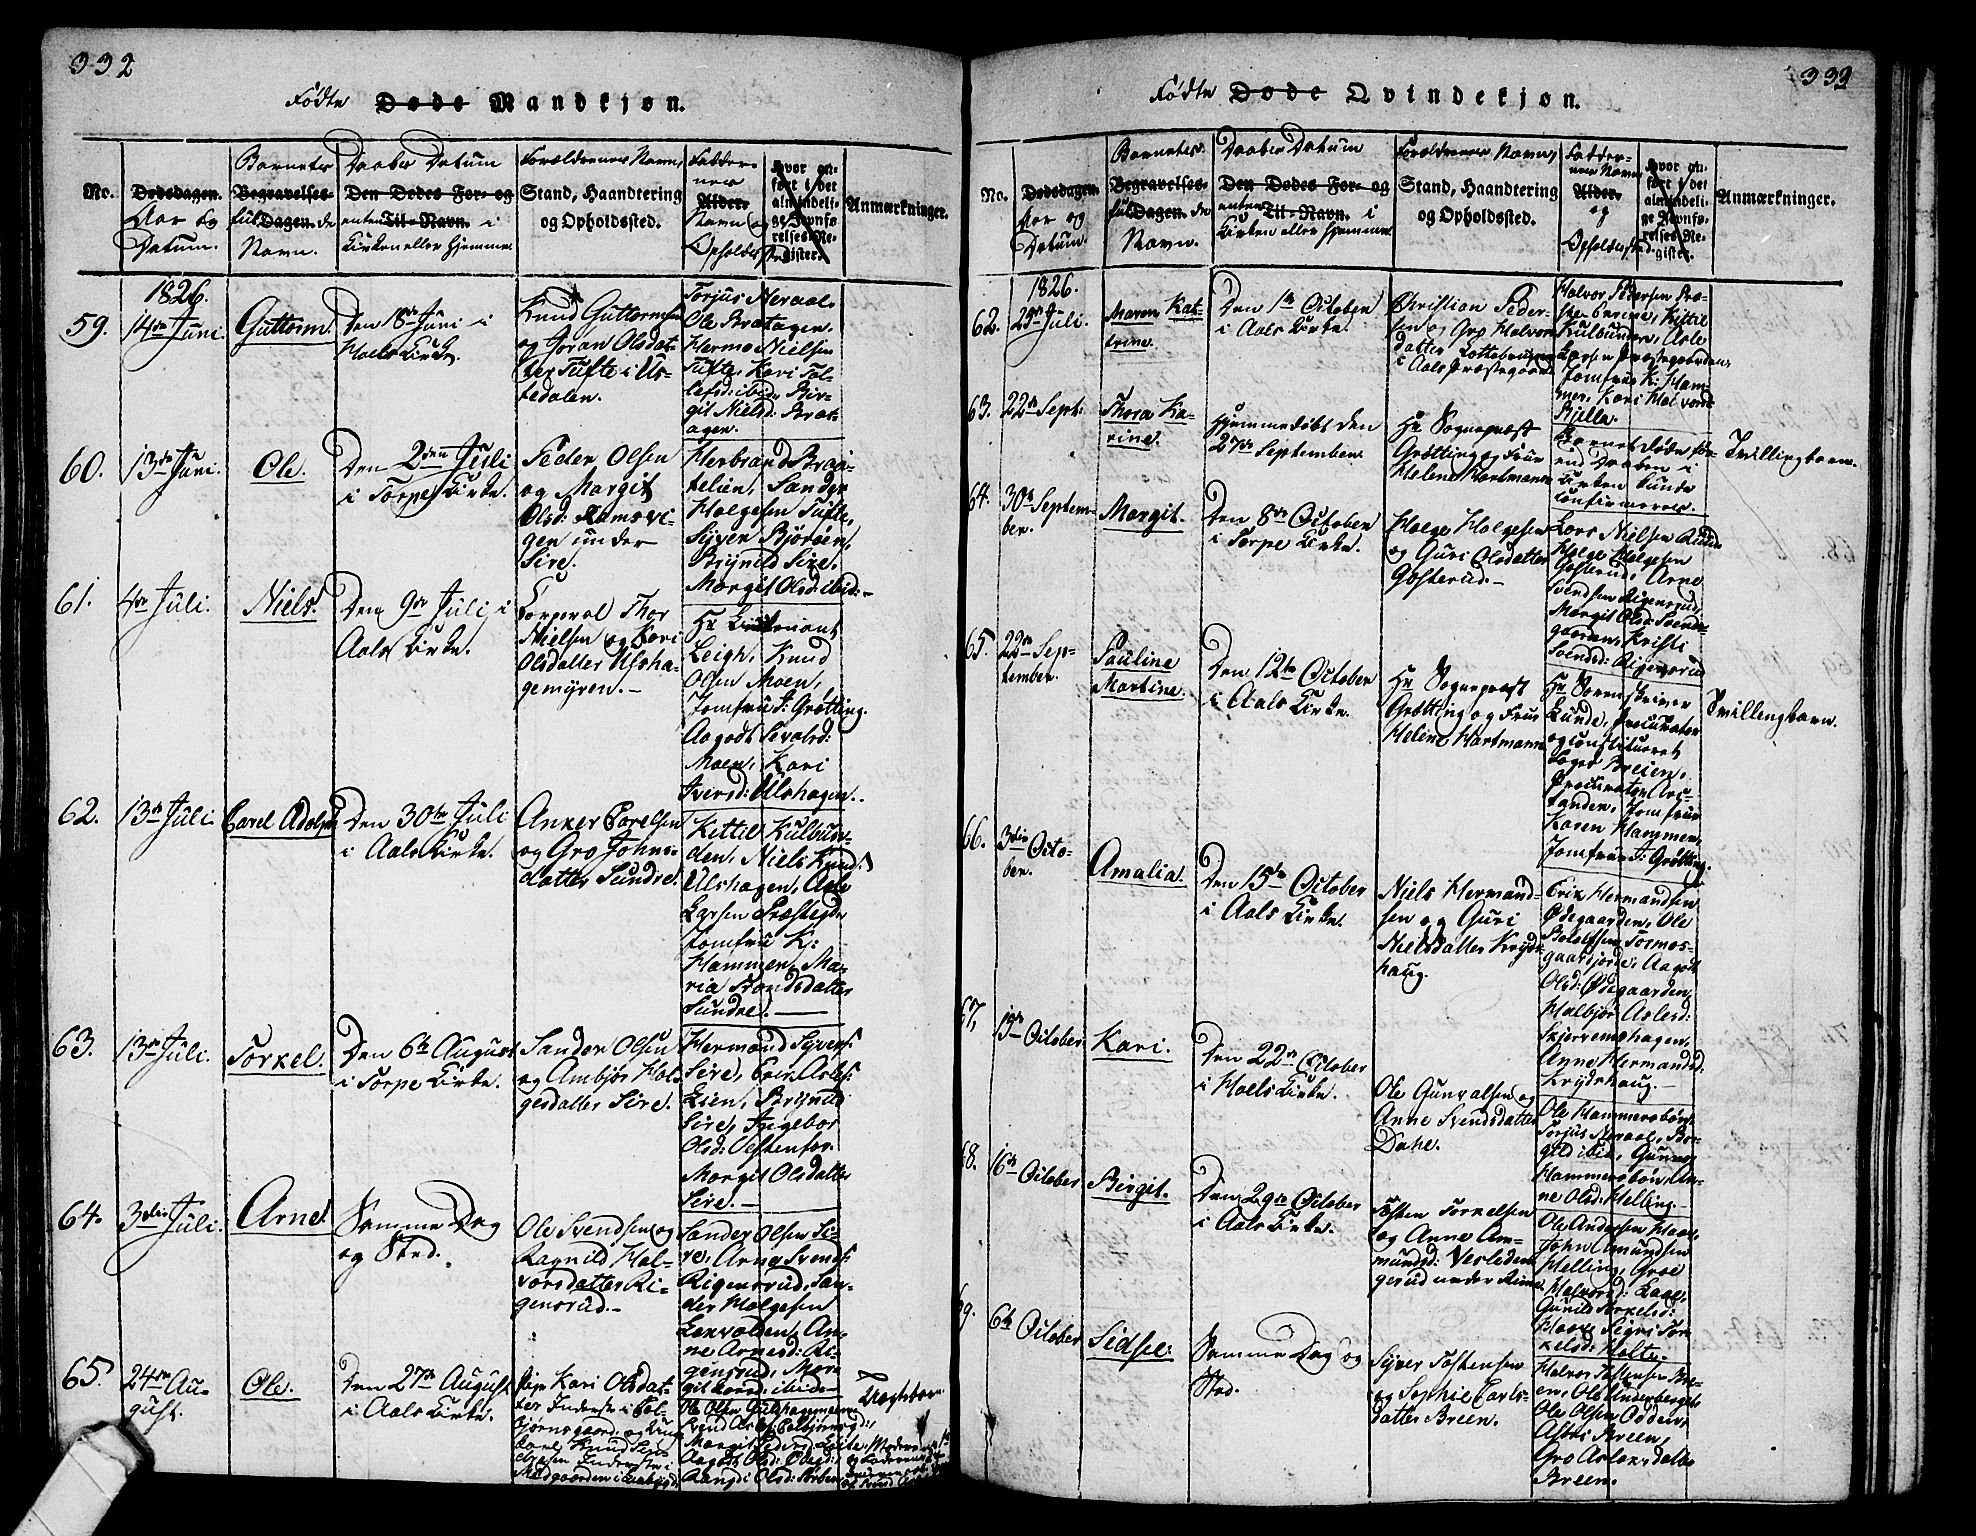 332
Fødte Døde Mandkjøn.
No.
Dødsdagen.
Aar og
Datum.
Barnets
Begravelses-
fulde
Dagen.
Navn.
Daabs Datum
Den Dødes For- og
enten Til-Navn. i
Kirken eller hjemme
Forældrenes Navn,
Stand, Haandtering
og Opholdssted.
Fadder-
nes
Alder.
Navn og
Opholdss
Hvor an-
ført i det
almindeli-
ge Jevnfø-
relses-Re-
gister.
Anmærkninger.
1826.
59.
14de Juni.
Guttorm.
Den 18de Juni i
Hols Kirke.
Knud Guttormsen
og Jøran Olsdat-
ter Tufte i Us-
tedalen.
Torjus Neraal,
Ole Bratagen,
Herman Nielsen
Tufte, Kari Tol-
lefsd: ibid., Bir-
git Nielsd: Brat-
agen.
60.
13de Juni.
Ole.
Den 2den Juli
i Torpe Kirke.
Peder Olsen
og Margit
Olsd: Ramsvi-
gen under
Sire.
Herbrand Braa-
telien, Sander
Holgesen Tufte,
Siver Bjøroen,
Brynild Sire,
Margit Olsd: ibid:-
61.
4de Juli.
Niels.
Den 9de Juli i
Aals Kirke.
Corporal Thor
Nielsen og Kari
Olsdatter Ulsha-
gemyren.-
Hr Lieutenant
Leigh, Knud
Olsen Moen,
Jomfru J: Grøtting.
Aagodt Sevalsd:
Moen, Kari
Iversd: Ulshagen.
62.
13de Juli.
Carel Adolph
Den 30te Juli
i Aals Kirke.
Anker Carelsen
og Gro Johns-
datter Sundre.
Kittil Kulbun-
den, Niels Knuds
Ulshagen, Asle
Larsen Præstegde
Jomfru K:
Hammer, Ma-
ria Trondsdatter
Sundre.
63.
13de Juli.
Torkel.
Den 6te August
i Torpe Kirke.
Sander Olsen
og Ambjør Hol-
gesdatter Sire.
Hermand Syvers:
Sire, Erik Asles:
Lien, Brynild
Sire, Ingebor
Olsd:
Margit Olsdatter
Sire.-
64.
3die Juli.
Arne
Samme Dag
og Sted.
Ole Svendsen og
Ragnild Hal-
vorsdatter Ri-
gensrud.-
Sander Olsen Si-
re, Arne Svends:
Rigensrud, San-
der Holgesen
An-
ne Arnesd: Ri-
gensrud, Mar-
git ibid:-
65.
24de Au-
gust.
Ole.
Den 27de August
i Aals Kirke.
Pige Kari Olsdat-
ter Inderst i
og Ung-
karl Knud
Inderst i
Ole Olsen
Svend
Margit Pedersd:
Aagodt Olsd:
Olsd:
Uægte
333
Fødte Døde Qvindekjøn.
No.
Dødsdagen.
Aar og
Datum.
Barnets
Begravelses-
fulde
Dagen.
Navn.
Daabs Datum
Den Dødes For- og
enten Til-Navn. i
Kirken eller hjemme
Forældrenes Navn,
Stand, Haandtering
og Opholdssted.
Fadder-
nes Navn
Alder.
og
Opholdssted
Hvor an-
ført i det
almindeli-
ge Jevnfø-
relses-Re-
gister.
Anmærkninger.
1826.
62.
29de Juli.
Maren Kat-
trine.
Den 1ste October
i Aals Kirke.
Christian Peder-
sen og Gro Halvors
datter
i Aals Præstegaard
Halvor Pedersen Præ-
Kittil
Kulbunden, Asle
Larsen Præstegaarden,
Jomfru K: Ham-
mer, Kari Halvorsd:
63.
22de Sept:
Thora Ka-
rine.
Hjemmedøbt den
27de September.
Hr Sognepræst
Grøtting og Frue
Helene Hartmann
Barnet døde før-
end Daaben i
Kirken kunde
confirmeres.
Tvillingbarn.
64.
30te Septem-
ber.
Margit.
Den 8de October
i Torpe Kirke.
Holge Holgesen
og Guri Olsdatter
Gosterud.-
Lars Nielsen
Holge Holgesen
Gosterud, Arne
Svendsen Rigensrud,
Margit Olsd: Svends-
gaaren, Kristi
Svendsd: Rigensrud
65.
22de Sep-
tember.
Pauline
Martine.
Den 12te October
i Aals Kirke.
Hr Sognepræst
Grøtting og Frue
Helene Hartmann
Hr Sorenskriver
Lunde, Procurator
og constitueret
Foged Breien,
Procurator Arc-
tander, Jomfrue
Karen Hammer,
Jomfrue J: Grøtting.
Tvillingbarn.
66.
3die Octo-
ber.
Amalia.
Den 15de October
i Aals Kirke.
Niels Hermand-
sen og Guri
Nielsdatter Kryds-
haug.
Erik Hermandsen
Ødegaarden, Ole
Botolfsen Tormos-
gaardsjorde, Aagodt
Olsd: Ødegaarden,
Halbjør Aslesd:
Skjervemshagen,
Anne Hermandsd
Krydshaug.-
67.
13de October
Kari.
Den 22de October
i Hols Kirke.
Ole Gunvalsen og
Anne Svendsdatter
Dahe.
Ole Hammersbøn,
Torjus Neraal, Bir-
git ibid:, Gunner
Hammersbøn, An-
ne Olsd: Helling.-
68.
16de October
Birgit.
Den 29de October
i Aals Kirke.
Tosten Torkelsen
og Anne Am-
mundsd:
gerud under
Ole Andersen
John Amundsen
Helling, Groe
Halvorsd:
Gunild Torkelsd:
Sigri Tor-
kelsd: Holto.-
69.
6te October
Sidsel.
Samme Dag og
Sted.
Siver Tostensen
og Sophie Carls-
datter Breen.
Halvor Tostensen Bre-
en, Ole Underberget
Ole Olsen Odden,
Astri Breen,
Gro Aslaksdatter
Breen.